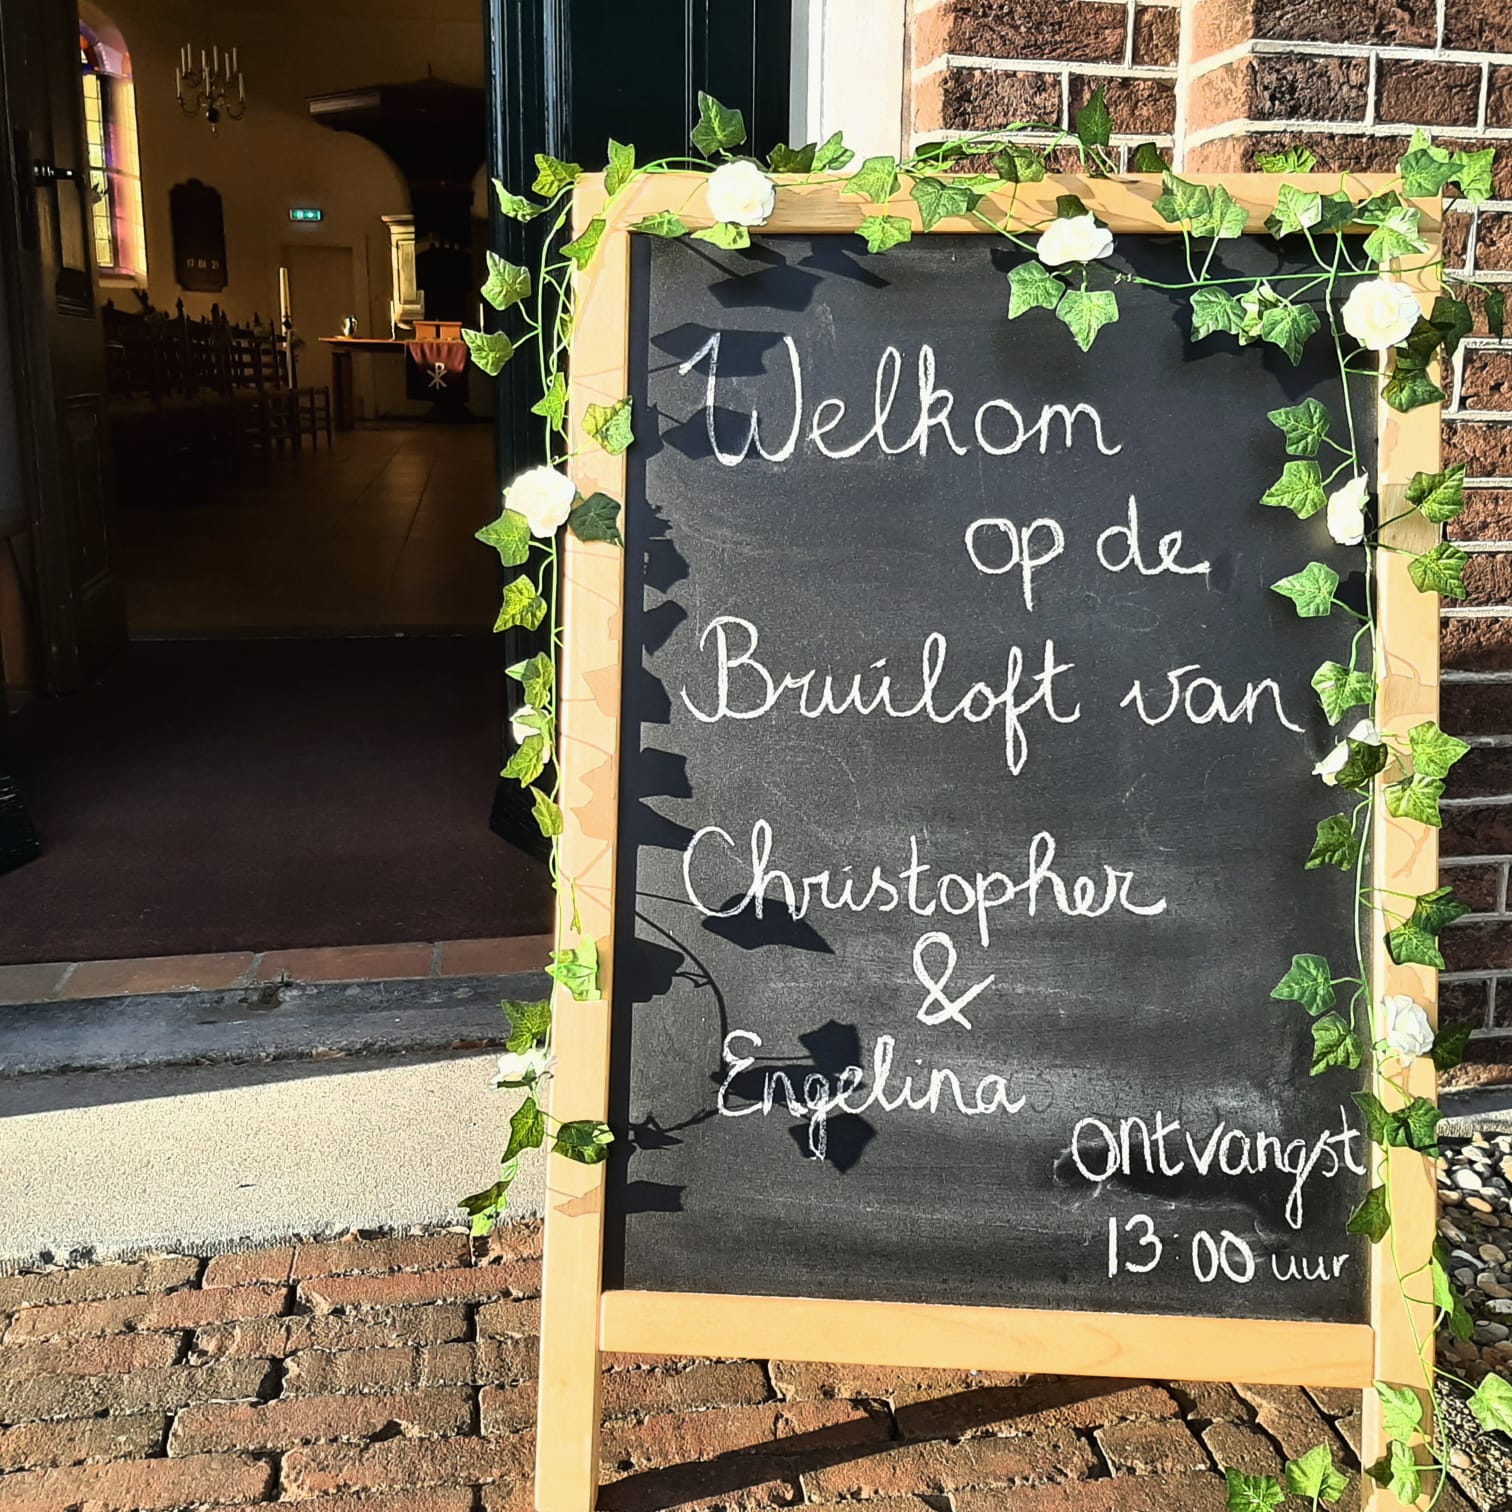 Welkom
op de
Bruiloft van
Christopher
&
Engelina
ontvangst
13:00 uur